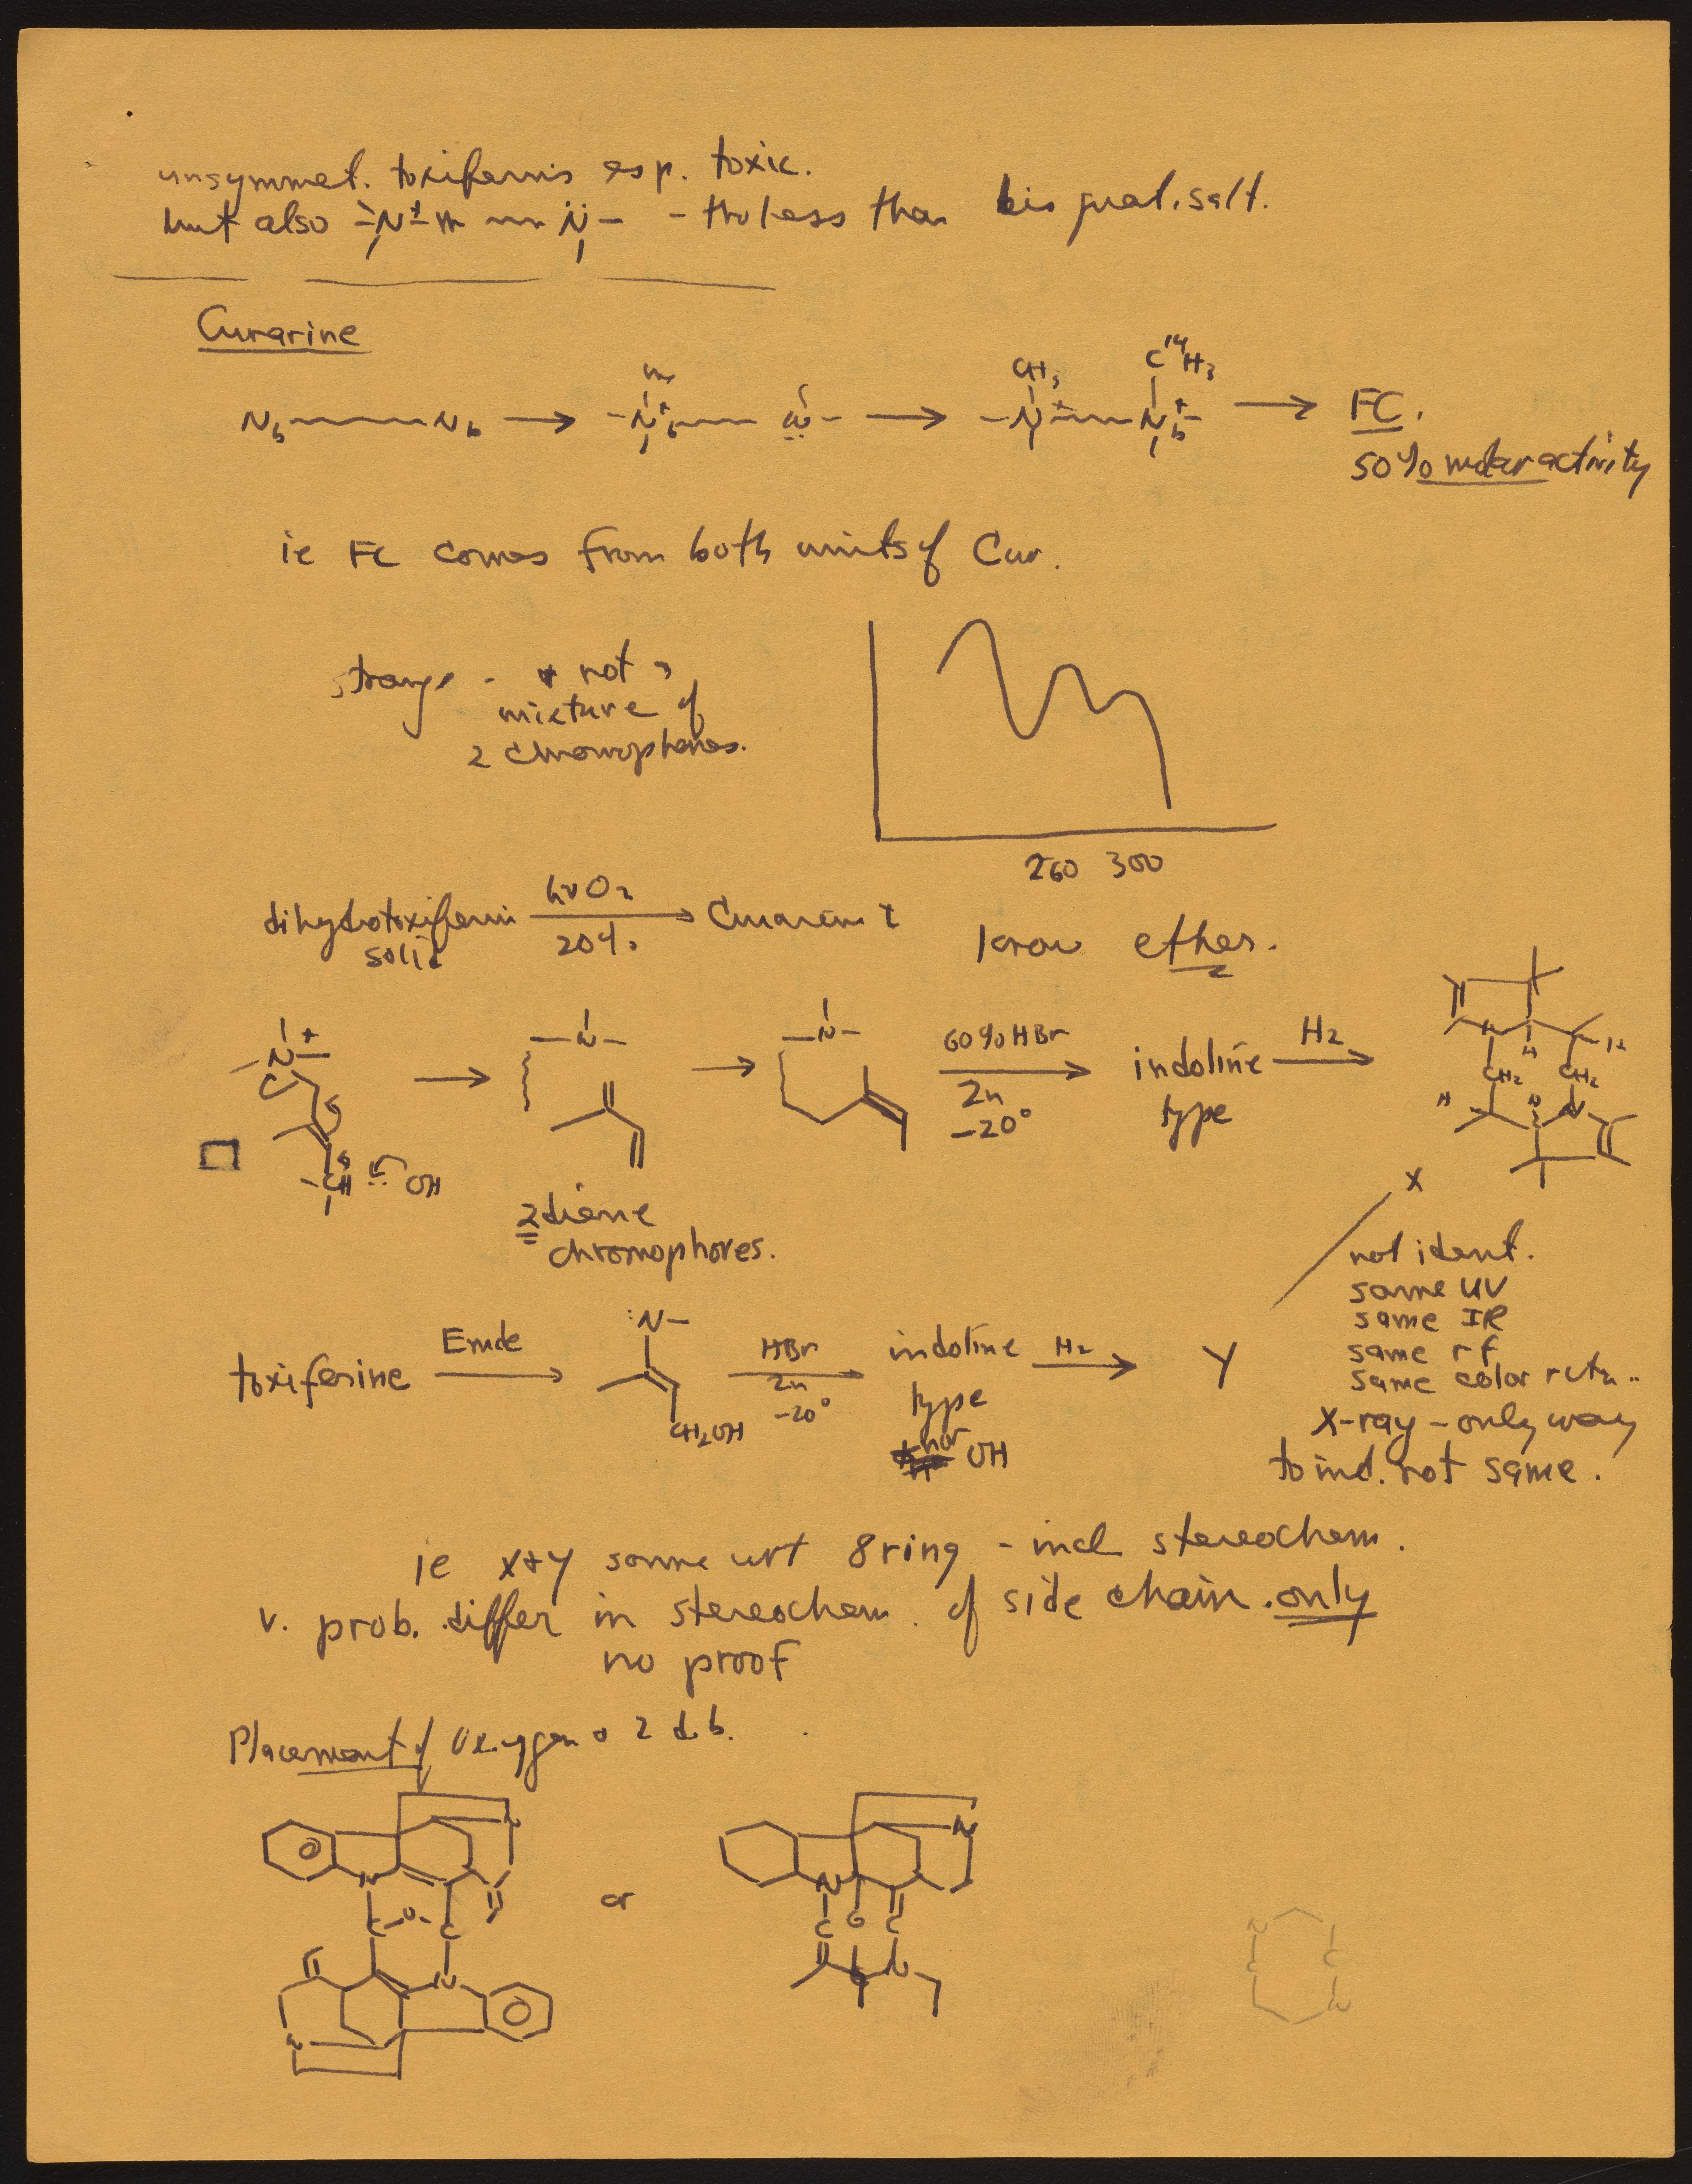 unsymmet. toxiferins esp. toxic.
but also -N+- N- - tho less than bis quat. salt.
Curarine
Nb Nb → -N+b N- → CH3 -N+ C14H3 N+b- → FC.
50% molar activity
ie FC comes from both units of Cur.
strange - & not a
mixture of
2 chromophores.
260 300
dihydrotoxiferin hνO2 → Curarine
solid 20%
know ether.
N+ → -N- → -N- 60% HBr → indoline H2 →
Zn type
-20°
CH OH
N H H
CH2 CH2
H N N
2 diene
chromophores.
X
not ident.
same UV
same IR
same rf
same color rctn..
X-ray - only way
to ind. not same.
toxiferine Emde → :N- HBr → indoline H2 → Y
Zn type
-20°
CH2OH nor OH
ie X+Y same wrt 8 ring - incl stereochem.
v. prob. differ in stereochem. of side chain. only
no proof
Placement of Oxygen & 2 d.b.
N N
N N
C-O-C or C O C
N N
N
N C
C N